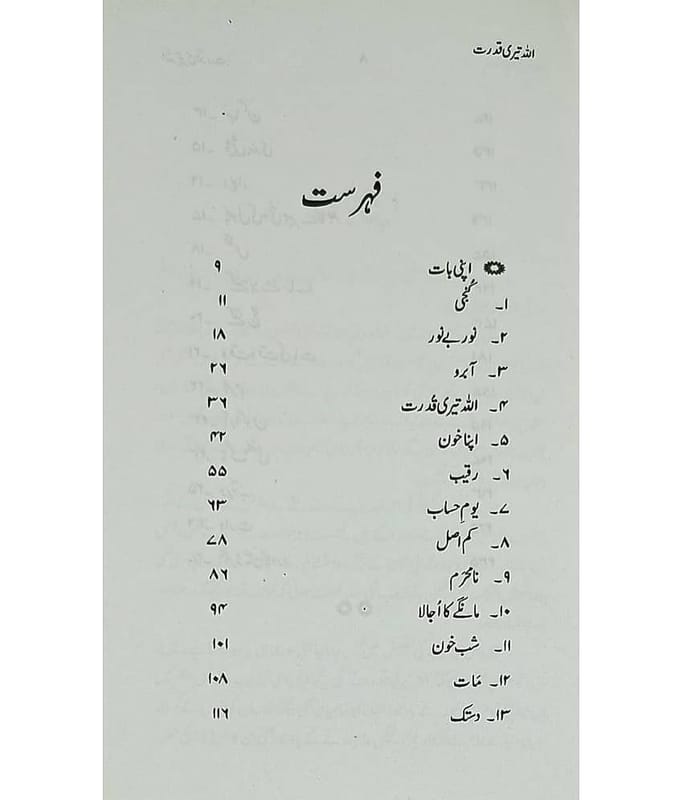 اللہ تیری قدرت
فہرست
اپنی بات ۹
۱۔ کُنجی ۱۱
۲۔ نور بے نور ۱۸
۳۔ آبرو ۲۶
۴۔ اللہ تیری قُدرت ۳۶
۵۔ اپنا خون ۴۲
۶۔ رقیب ۵۵
۷۔ یومِ حساب ۶۳
۸۔ کم اصل ۷۸
۹۔ نامحرَم ۸۶
۱۰۔ مانگے کا اُجالا ۹۴
۱۱۔ شب خون ۱۰۱
۱۲۔ مَات ۱۰۸
۱۳۔ دستک ۱۱۶